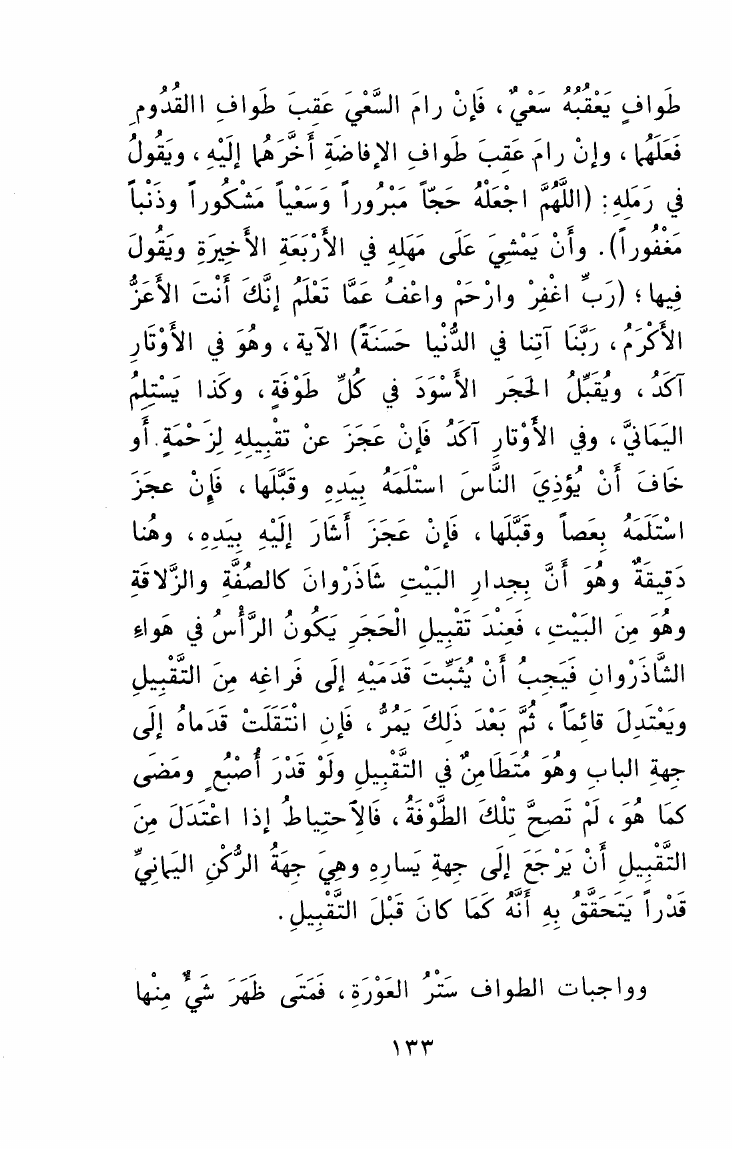 طَوافٍ يَعْقُبُهُ سَعْيٌ، فَإِنْ رامَ السَّعْيَ عَقِبَ طَوافِ االقُدُومِ
فَعَلَهُما، وإنْ رامَ عَقِبَ طَوافِ الإفاضَةِ أَخَّرَهُما إلَيْهِ، ويَقُولُ
في رَمَلِهِ: (اللَّهُمَّ اجْعَلْهُ حَجّاً مَبْرُوراً وَسَعْياً مَشْكُوراً وذَنْباً
مَغْفُوراً). وأَنْ يَمْشِيَ عَلَى مَهَلِهِ في الأرْبَعَةِ الأخِيرَةِ ويَقُولَ
فِيها؛ (رَبِّ اغْفِرْ وارْحَمْ واعْفُ عَمَّا تَعْلَمُ إنَّكَ أَنْتَ الأعَزُّ
الأكْرَمُ، رَبَّنَا آتِنا في الدُّنْيا حَسَنَةً) الآية، وهُوَ في الأوْتَارِ
آكَدُ، ويُقَبِّلُ الحَجَر الأسْوَدَ في كُلِّ طَوْفَةٍ، وكَذا يَسْتَلِمُ
اليَمَانيَّ، وفي الأوْتارِ آكَدُ فَإنْ عَجَزَ عنْ تقْبِيلِهِ لِزَحْمَةٍ أو
خَافَ أَنْ يُؤذِيَ النَّاسَ استْلَمَهُ بِيَدِهِ وقَبَّلَها، فَإِنْ عجَزَ
اسْتَلَمَهُ بِعَصاً وقَبَّلَها، فَإنْ عَجَزَ أشَارَ إلَيْهِ بِيَدِهِ، وهُنا
دَقِيقَةٌ وهُوَ أنَّ بِجِدارِ البَيْتِ شَاذَرْوانَ كالصُفَّةِ والزَّلاقَةِ
وهُوَ مِنَ البَيْتِ، فَعِنْدَ تَقْبِيلِ الْحَجَرِ يَكُونُ الرَّأْسُ في هَواءِ
الشَّاذَرْوانِ فَيَجِبُ أنْ يُثَبِّتَ قَدَمَيْهِ إلى فَراغِه مِنَ التَّقْبِيلِ
ويَعْتَدِلَ قائماً، ثُمَّ بَعْدَ ذَلِكَ يَمُرُّ، فَإن انْتَقَلَتْ قَدَماهُ إلى
جِهةِ البابِ وهُوَ مُتَطَامِنٌ في التَّقْبِيلِ ولَوْ قَدْرَ أُصْبُعٍ ومَضَى
كمَا هُوَ، لَمْ تَصِحَّ تِلْكَ الطَّوْفَةُ، فَالاَحتِياطُ إذا اعْتَدَلَ مِنَ
التَّقْبِيلِ أَنْ يَرْجَعَ إلَى جِهةِ يَسارِهِ وهِيَ جِهَةُ الرُّكْنِ اليَمانِيِّ
قَدْراً يَتَحَقَّقُ بِهِ أنَّهُ كَمَا كانَ قَبْلَ التَّقْبِيلِ.
وواجبات الطواف سَتْرُ العَوْرَةِ، فَمَتَى ظَهَرَ شَيٌّ مِنْها
١٣٣